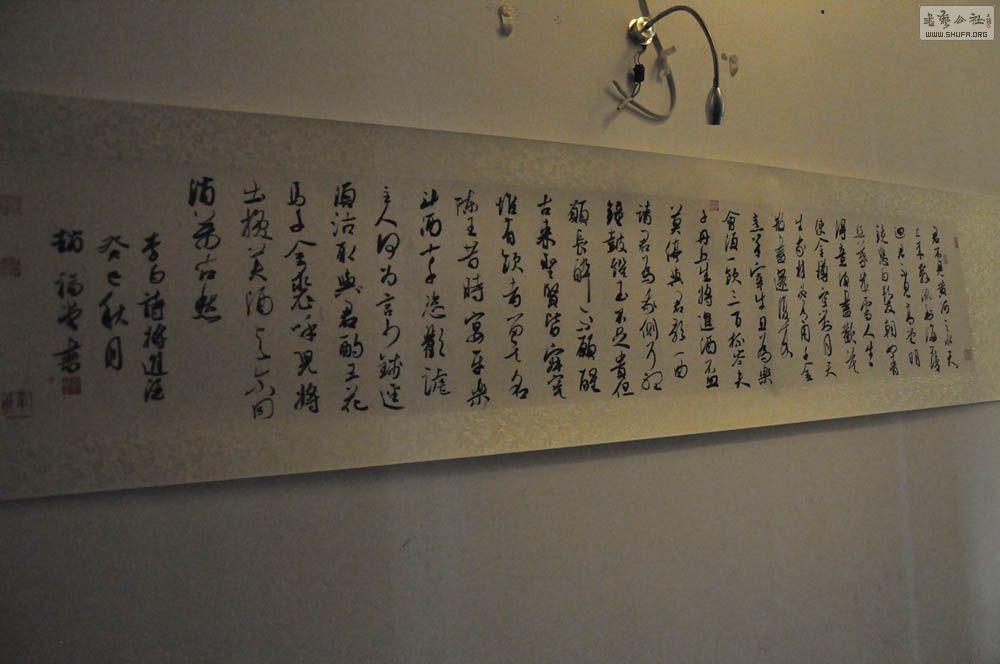 君不見黄河之水天
上来奔流到海不復
回君不見高堂明
鏡悲白髮朝如青
絲暮成雪人生
得意須盡歡莫
使金樽空對月天
生我材必有用千金
散盡還復来
烹羊宰牛且為樂
會須一飲三百杯岑夫
子丹丘生將進酒杯
莫停與君歌一曲
請君為我側耳聽
鐘鼓饌玉不足貴但
願長醉不願醒
古来聖賢皆寂寞
惟有飲者留其名
陳王昔時宴平樂
斗酒十千恣歡謔
主人何為言少錢逕
須沽取與君酌五花
馬千金裘呼兒將
出換美酒與爾同
消萬古愁
李白詩將進酒
癸巳秋月
趙福堂書
書藝公社
WWW.SHUFA.ORG